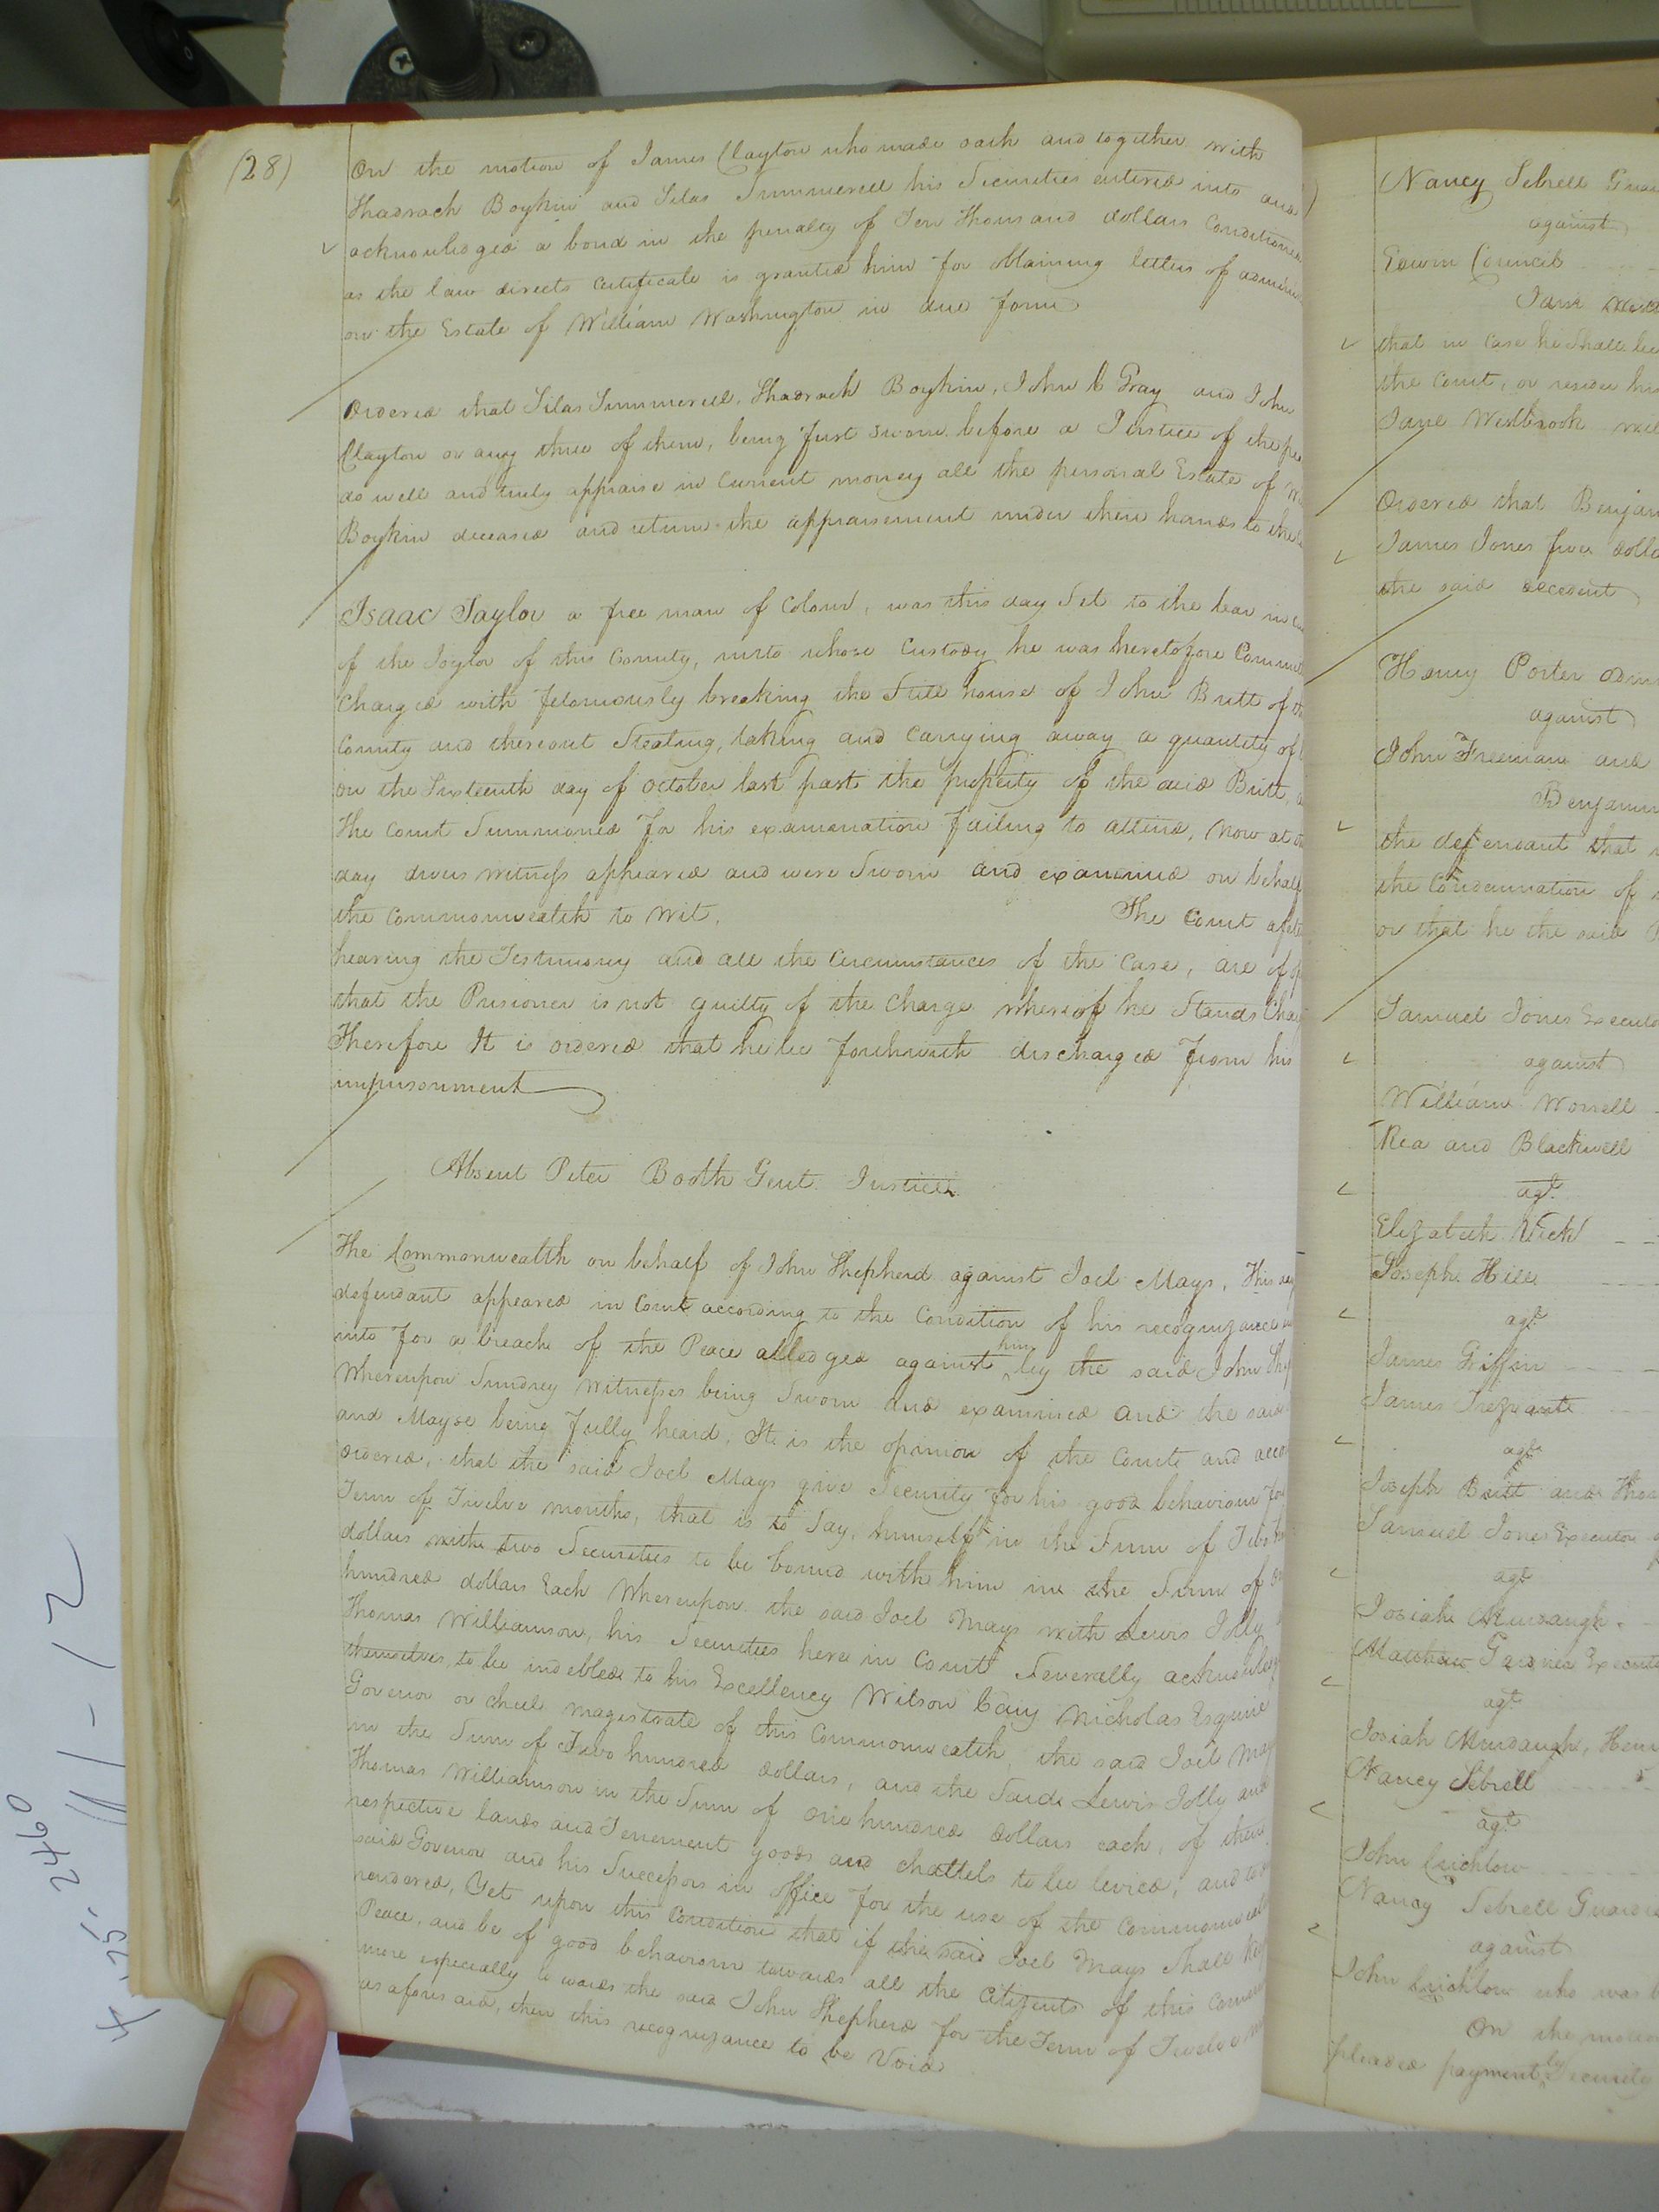 (28)
On the motion of James Clayton who made oath and together with
Shadrach Boykin and Silas Summerell his Securities entered into and
acknowledged a bond in the penalty of Ten Thousand dollars Conditioned
as the law directs Certificate is granted him for obtaining letters of
on the Estate of William Washington in due form
Ordered that Silas Summerell, Shadrach Boykin, John C Gray and John
Clayton or any three of them, being first sworn before a Justice of the
do well and truly appraise in Current money all the personal Estate of
Boykin deceased and return the appraisement under their hands to the
Isaac Taylor a free man of Colour, was this day Set to the bar in
of the Jaylor of this County, unto whose Custody he was heretofore
Charged with feloniously breaking the Still house of John Britt of
County and thereout Stealing, taking and Carrying away a quantity of
on the Sixteenth day of October last past the property of the said Britt,
The Court Summoned for his examanation failing to attend, Now at
day divers witness appeared and were Sworn and examined on behalf
the Commonwealth to wit. The Court
hearing the Testimony and all the Circumstances of the Case, are of
that the Prisioner is not guilty of the Charge whereof he Stands
Therefore It is ordered that he be forthwith discharged from his
imprisonment
Absent Peter Booth Gent. Justice
The Commonwealth on behalf of John Shepherd against Joel Mays, This
defendant appeared in Court according to the Condition of his recognizance
into for a breach of the Peace alledged against him by the said John
Whereupon Sundrey Witnesses being Sworn and examined and the said
and Mayse being fully heard, It is the opinion of the Court and
ordered, that the said Joel Mays give Security for his good behaviour
Term of Twelve months, that is to Say, himself in the Sum of Two
dollars with two Securities to be bound with him in the Sum of
hundred dollars Each Whereupon the said Joel Mays with Lewis Jolly
Thomas Williamson, his Securities here in Court Severally
themselves, to be indebted to his Excellency Wilson Cary Nicholas Esquire
Govenor or cheif magistrate of this Commonwealth, the said Joel
in the Sum of Two hundred dollars, and the Said Lewis Jolly and
Thomas Williamson in the Sum of one hundred dollars each, of their
respective lands and Tenement goods and chattels to be levied, and
said Govenor and his Successors in office for the use of the Commonwealth
rendered, Yet upon this Condition that if the said Joel Mays Shall
Peace, and be of good behaviour towards all the Citizens of this
more especially towards the said John Shepherd for the Term of Twelve
as aforesaid, then this recognizance to be Void
Nancy Sebrell
against
Edwin Council
Jane
that in Case he Shall be
the Court, or render his
Jane Westbrook
Ordered that
James Jones five
the said decedent
Henry Porter
against
John Freeman and
the defendant that
the Condemnation of
or that he the said
Samuel Jones
against
William Worrell
Rea and Blackwell
agt.
Elizabeth Vick
Joseph Hill
agt.
James Griffin
James Trezvant
agt.
Joseph Britt and
Samuel Jones Executor
agt.
Josiah Murdaugh
Matthew
agt.
Josiah Murdaugh,
Nancy Sebrell
agt.
John Crichlow
Nancy Sebrell
against
John Crichlow who was
On the motion
pleaded payment by Security